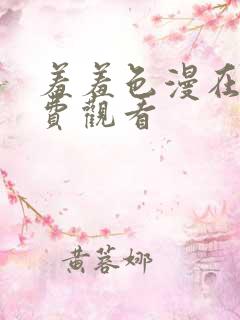 羞羞色漫在
費觀看
黄蓉娜